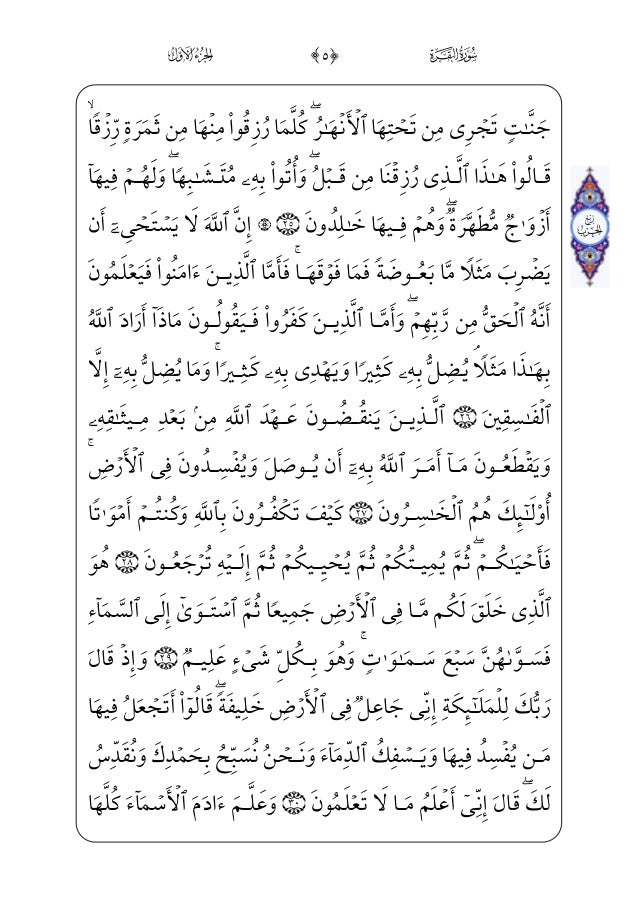 سُورَةُ البَقَرَةِ ﴿٥﴾ الجُزءُ الأَوَّلُ
جَنَّـٰتٍۢ تَجْرِى مِن تَحْتِهَا ٱلْأَنْهَـٰرُ ۖ كُلَّمَا رُزِقُوا۟ مِنْهَا مِن ثَمَرَةٍۢ رِّزْقًۭا ۙ
قَالُوا۟ هَـٰذَا ٱلَّذِى رُزِقْنَا مِن قَبْلُ ۖ وَأُتُوا۟ بِهِۦ مُتَشَـٰبِهًۭا ۖ وَلَهُمْ فِيهَآ
أَزْوَٰجٌۭ مُّطَهَّرَةٌۭ ۖ وَهُمْ فِيهَا خَـٰلِدُونَ ٢٥ ۞ إِنَّ ٱللَّهَ لَا يَسْتَحْىِۦٓ أَن
رُبع الحِزب
يَضْرِبَ مَثَلًۭا مَّا بَعُوضَةًۭ فَمَا فَوْقَهَا ۚ فَأَمَّا ٱلَّذِينَ ءَامَنُوا۟ فَيَعْلَمُونَ
أَنَّهُ ٱلْحَقُّ مِن رَّبِّهِمْ ۖ وَأَمَّا ٱلَّذِينَ كَفَرُوا۟ فَيَقُولُونَ مَاذَآ أَرَادَ ٱللَّهُ
بِهَـٰذَا مَثَلًۭا ۘ يُضِلُّ بِهِۦ كَثِيرًۭا وَيَهْدِى بِهِۦ كَثِيرًۭا ۚ وَمَا يُضِلُّ بِهِۦٓ إِلَّا
ٱلْفَـٰسِقِينَ ٢٦ ٱلَّذِينَ يَنقُضُونَ عَهْدَ ٱللَّهِ مِنۢ بَعْدِ مِيثَـٰقِهِۦ
وَيَقْطَعُونَ مَآ أَمَرَ ٱللَّهُ بِهِۦٓ أَن يُوصَلَ وَيُفْسِدُونَ فِى ٱلْأَرْضِ ۚ
أُو۟لَـٰٓئِكَ هُمُ ٱلْخَـٰسِرُونَ ٢٧ كَيْفَ تَكْفُرُونَ بِٱللَّهِ وَكُنتُمْ أَمْوَٰتًۭا
فَأَحْيَـٰكُمْ ۖ ثُمَّ يُمِيتُكُمْ ثُمَّ يُحْيِيكُمْ ثُمَّ إِلَيْهِ تُرْجَعُونَ ٢٨ هُوَ
ٱلَّذِى خَلَقَ لَكُم مَّا فِى ٱلْأَرْضِ جَمِيعًۭا ثُمَّ ٱسْتَوَىٰٓ إِلَى ٱلسَّمَآءِ
فَسَوَّىٰهُنَّ سَبْعَ سَمَـٰوَٰتٍۢ ۚ وَهُوَ بِكُلِّ شَىْءٍ عَلِيمٌۭ ٢٩ وَإِذْ قَالَ
رَبُّكَ لِلْمَلَـٰٓئِكَةِ إِنِّى جَاعِلٌۭ فِى ٱلْأَرْضِ خَلِيفَةًۭ ۖ قَالُوٓا۟ أَتَجْعَلُ فِيهَا
مَن يُفْسِدُ فِيهَا وَيَسْفِكُ ٱلدِّمَآءَ وَنَحْنُ نُسَبِّحُ بِحَمْدِكَ وَنُقَدِّسُ
لَكَ ۖ قَالَ إِنِّىٓ أَعْلَمُ مَا لَا تَعْلَمُونَ ٣٠ وَعَلَّمَ ءَادَمَ ٱلْأَسْمَآءَ كُلَّهَا